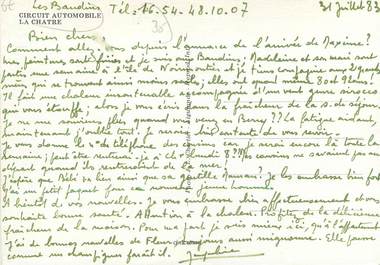 Les Baudins
CIRCUIT AUTOMOBILE
LA CHATRE
Tél: 16.54.48.10.07
31 juillet 83
Bien chers,
Comment allez-vous depuis l'annonce de l'arrivée de
peintures sont finies et je suis aux Baudins; Madeleine et son mari sont
partis une semaine à l'île de Noirmoutier et je tiens compagnie aux 2
qui se trouvent ainsi moins seules; elles ont quand même 80 et 91 ans!
Il fait une chaleur insoutenable accompagnée d'un vent genre sirocco
qui vous étouffe; alors je vous écris dans la fraîcheur de la s. de séjour.
Je ne me souviens plus quand vous venez en Berry??? La fatigue aidant,
maintenant j'oublie tout. Je serais bien contente de vous revoir.
Je vous donne le n° de téléphone des cousins car je serai encore là toute la
semaine; peut-être reviendrai-je à la ch. lundi 8? Mes cousins ne savaient pas au
départ quand ils rentreraient de la mer!
J'espère que Bébé va bien ainsi que sa gentille Maman? Je les embrasse bien fort
J'ai un petit paquet pour ce nouveau jeune homme.
A bientôt de vos nouvelles. Je vous embrasse bien affectueusement et vous
souhaite bonne santé. Attention à la chaleur. Profitez de la délicieuse
fraîcheur de la maison. Pour ma part je suis mieux ici, qu'à l'appartement
J'ai de bonnes nouvelles de Fleur toujours aussi mignonne. Elle pousse
comme un champignon paraît-il.